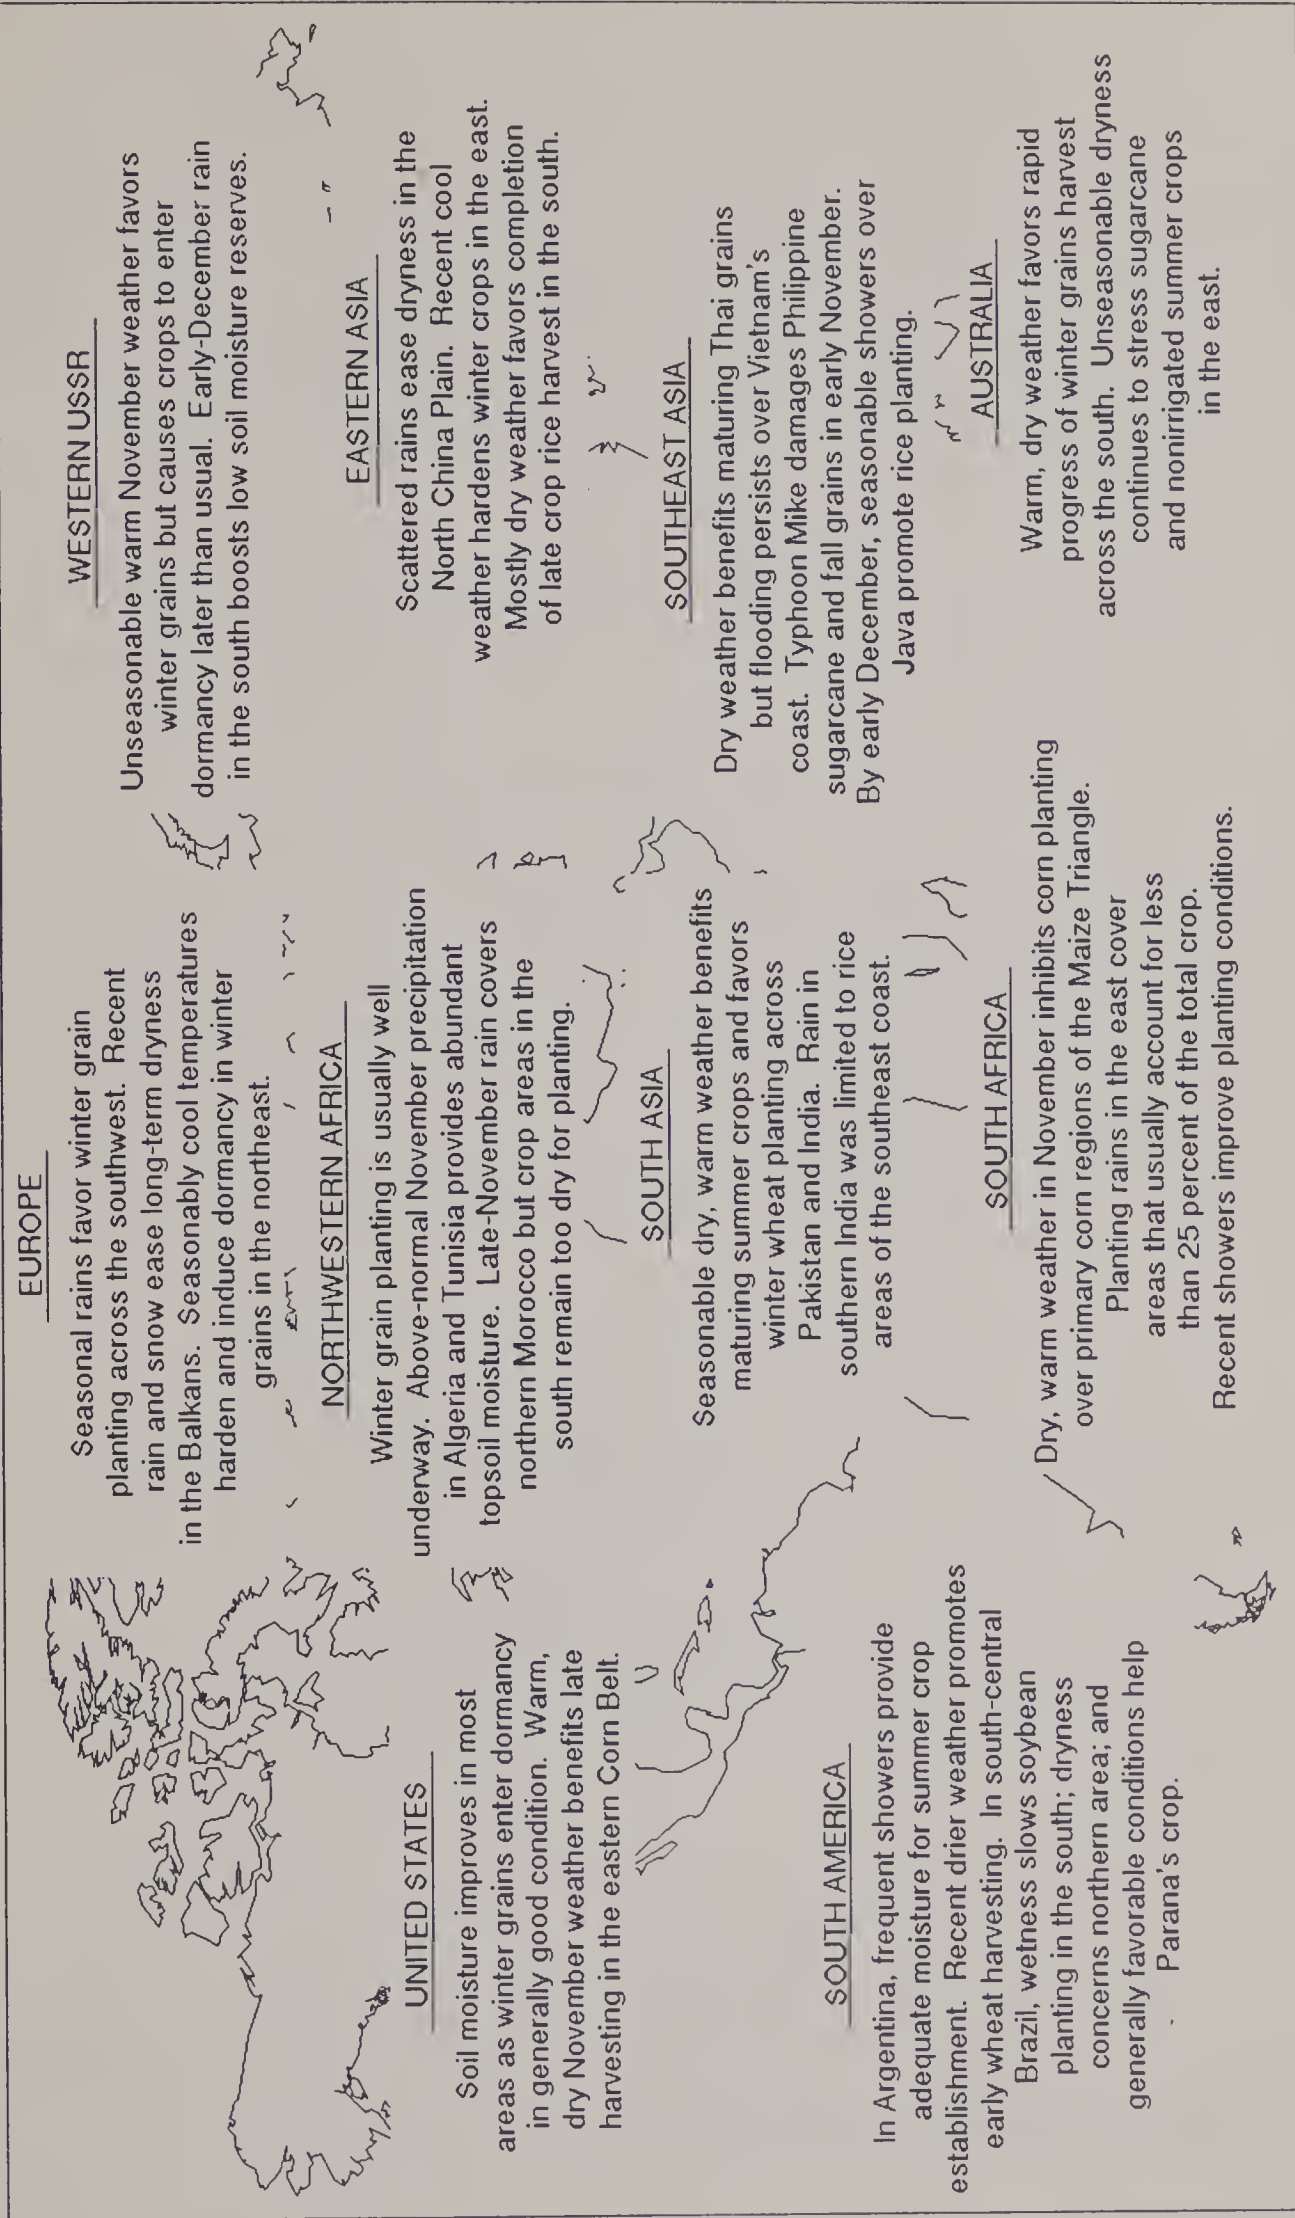 EUROPE
Seasonal rains favor winter grain
planting across the southwest. Recent
rain and snow ease long-term dryness
in the Balkans. Seasonably cool temperatures
harden and induce dormancy in winter
grains in the northeast.
WESTERN USSR
Unseasonable warm November weather favors
winter grains but causes crops to enter
dormancy later than usual. Early-December rain
in the south boosts low soil moisture reserves.
UNITED STATES
Soil moisture improves in most
areas as winter grains enter dormancy
in generally good condition. Warm,
dry November weather benefits late
harvesting in the eastern Corn Belt.
NORTHWESTERN AFRICA
Winter grain planting is usually well
underway. Above-normal November precipitation
in Algeria and Tunisia provides abundant
topsoil moisture. Late-November rain covers
northern Morocco but crop areas in the
south remain too dry for planting.
EASTERN ASIA
Scattered rains ease dryness in the
North China Plain. Recent cool
weather hardens winter crops in the east.
Mostly dry weather favors completion
of late crop rice harvest in the south.
SOUTH ASIA
Seasonable dry, warm weather benefits
maturing summer crops and favors
winter wheat planting across
Pakistan and India. Rain in
southern India was limited to rice
areas of the southeast coast.
SOUTHEAST ASIA
Dry weather benefits maturing Thai grains
but flooding persists over Vietnam's
coast. Typhoon Mike damages Philippine
sugarcane and fall grains in early November.
By early December, seasonable showers over
Java promote rice planting.
SOUTH AMERICA
In Argentina, frequent showers provide
adequate moisture for summer crop
establishment. Recent drier weather promotes
early wheat harvesting. In south-central
Brazil, wetness slows soybean
planting in the south; dryness
concerns northern area; and
generally favorable conditions help
Parana's crop.
SOUTH AFRICA
Dry, warm weather in November inhibits corn planting
over primary corn regions of the Maize Triangle.
Planting rains in the east cover
areas that usually account for less
than 25 percent of the total crop.
Recent showers improve planting conditions.
AUSTRALIA
Warm, dry weather favors rapid
progress of winter grains harvest
across the south. Unseasonable dryness
continues to stress sugarcane
and nonirrigated summer crops
in the east.